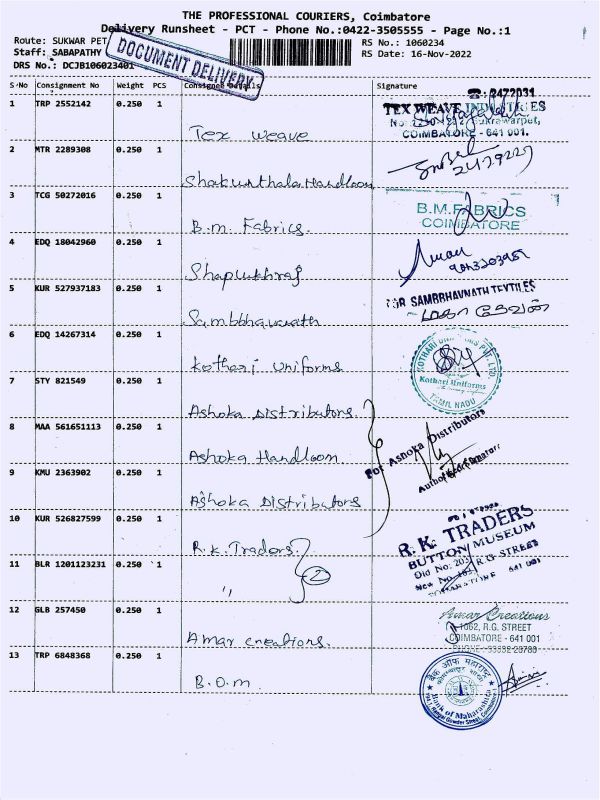 THE PROFESSIONAL COURIERS, Coimbatore
Delivery Runsheet - PCT - Phone No.:0422-3505555 - Page No.:1
Route: SUKWAR PET
RS No.: 1060234
Staff: SABAPATHY
RS Date: 16-Nov-2022
DRS No.: DCJB106023401
DOCUMENT DELIVERY
S.No Consignment No Weight PCS Consignee Details Signature
1 TRP 2552142 0.250 1
Tex Weave
TEX WEAVE INDUSTRIES
COIMBATORE - 641 001.
2 MTR 2289308 0.250 1
Shakunthala Handloom
3 TCG 50272016 0.250 1
B.m. Fabrics.
B.M.FABRICS
COIMBATORE
4 EDQ 18042960 0.250 1
5 KUR 527937183 0.250 1
FOR SAMBBHAVNATH TEXTILES
6 EDQ 14267314 0.250 1
Kothari Uniforms
Kothari Uniforms
TAMIL NADU
7 STY 821549 0.250 1
Ashoka Distributors
8 MAA 561651113 0.250 1
Ashoka Handloom
For Ashoka Distributors
9 KMU 2363902 0.250 1
Ashoka Distributors
10 KUR 526827599 0.250 1
R.K. Traders
R. K. TRADERS
BUTTON MUSEUM
11 BLR 1201123231 0.250 1
" 2
12 GLB 257450 0.250 1
Amar creations.
Amar Creations
1062, R.G. STREET
COIMBATORE - 641 001
13 TRP 6848368 0.250 1
B.O.m
बैंक ऑफ महाराष्ट्र
Bank of Maharashtra